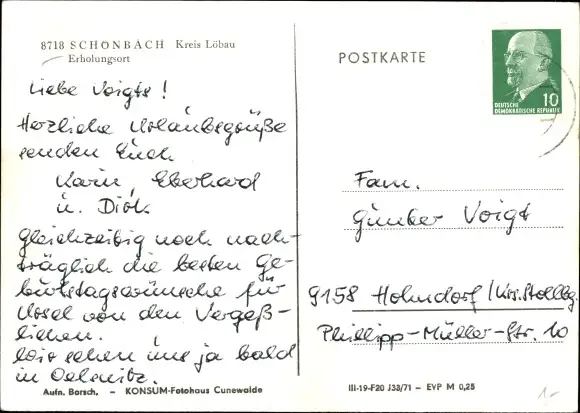 8718 SCHÖNBACH Kreis Löbau
Erholungsort
Liebe Voigts!
Herzliche Urlaubsgrüße
senden Euch
Karin, Eberhard
u. Dirk
Gleichzeitig noch nach-
träglich die besten Ge-
burtstagswünsche für
von den Vergeß-
lichen.
Wir sehen uns ja bald
in Oelsnitz.
Aufn. Borsch. – KONSUM-Fotohaus Cunewalde
POSTKARTE
10
DEUTSCHE
DEMOKRATISCHE REPUBLIK
Fam.
Günter Voigt
9159 Hohndorf/Krs. Stollbg.
Phillipp-Müller-Str. 10
III-19-F20 J33/71 – EVP M 0,25
1-